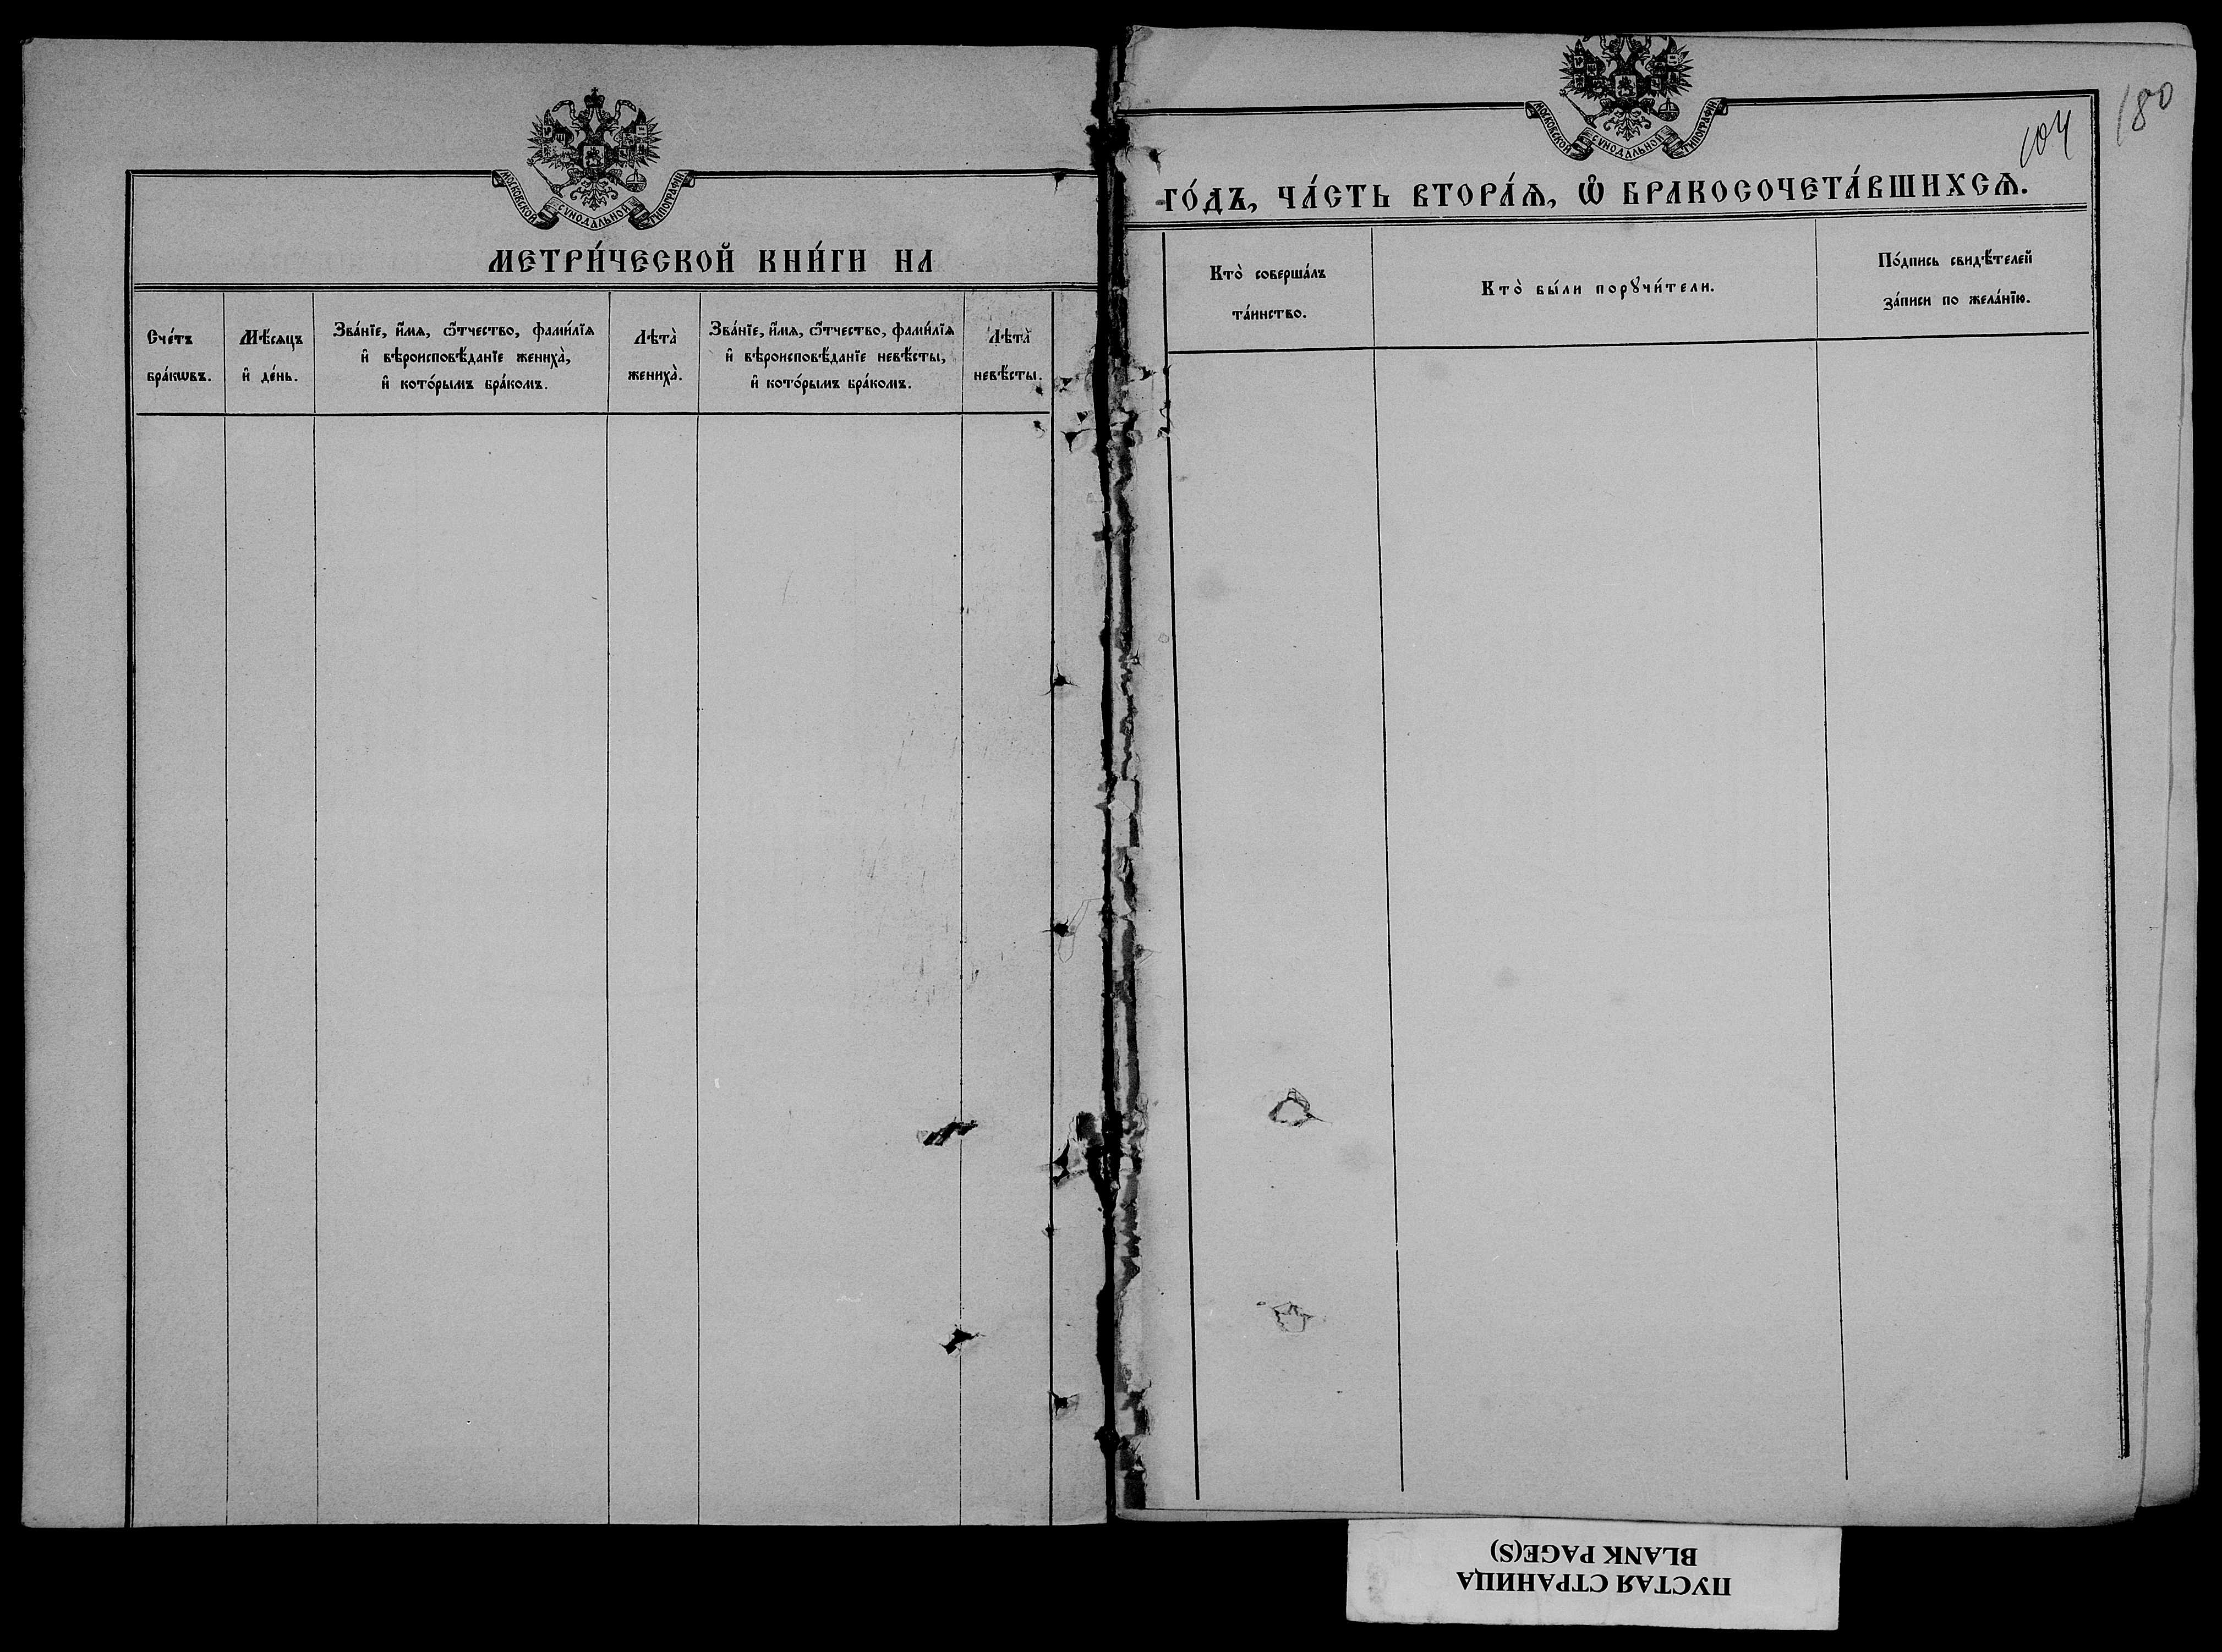 МОСКОВСКОЙ СѴНОДАЛЬНОЙ ТИПОГРАФІИ
МЕТРИ́ЧЕСКОЙ КНИ́ГИ НА
Сче́тъ
бра́кѡвъ.
Мѣ́сяцъ
и҆ де́нь.
Зва́нїе, и҆́мѧ, ѻ҆́тчество, фами́лїѧ
и҆ вѣроисповѣ́данїе жениха̀,
и҆ кото́рымъ бра́комъ.
Лѣта̀
жениха̀.
Зва́нїе, и҆́мѧ, ѻ҆́тчество, фами́лїѧ
и҆ вѣроисповѣ́данїе невѣ́сты,
и҆ кото́рымъ бра́комъ.
Лѣта̀
невѣ́сты.
МОСКОВСКОЙ СѴНОДАЛЬНОЙ ТИПОГРАФІИ
104
180
ГО́ДЪ, ЧА́СТЬ ВТОРА́Ѧ, Ѡ҆ БРАКОСОЧЕТА́ВШИХСѦ.
Кто̀ соверша́лъ
та́инство.
Кто̀ бы́ли порꙋчи́тели.
По́дпись свидѣ́телей
за́писи по жела́нїю.
ПУСТАЯ СТРАНИЦА
BLANK PAGE(S)